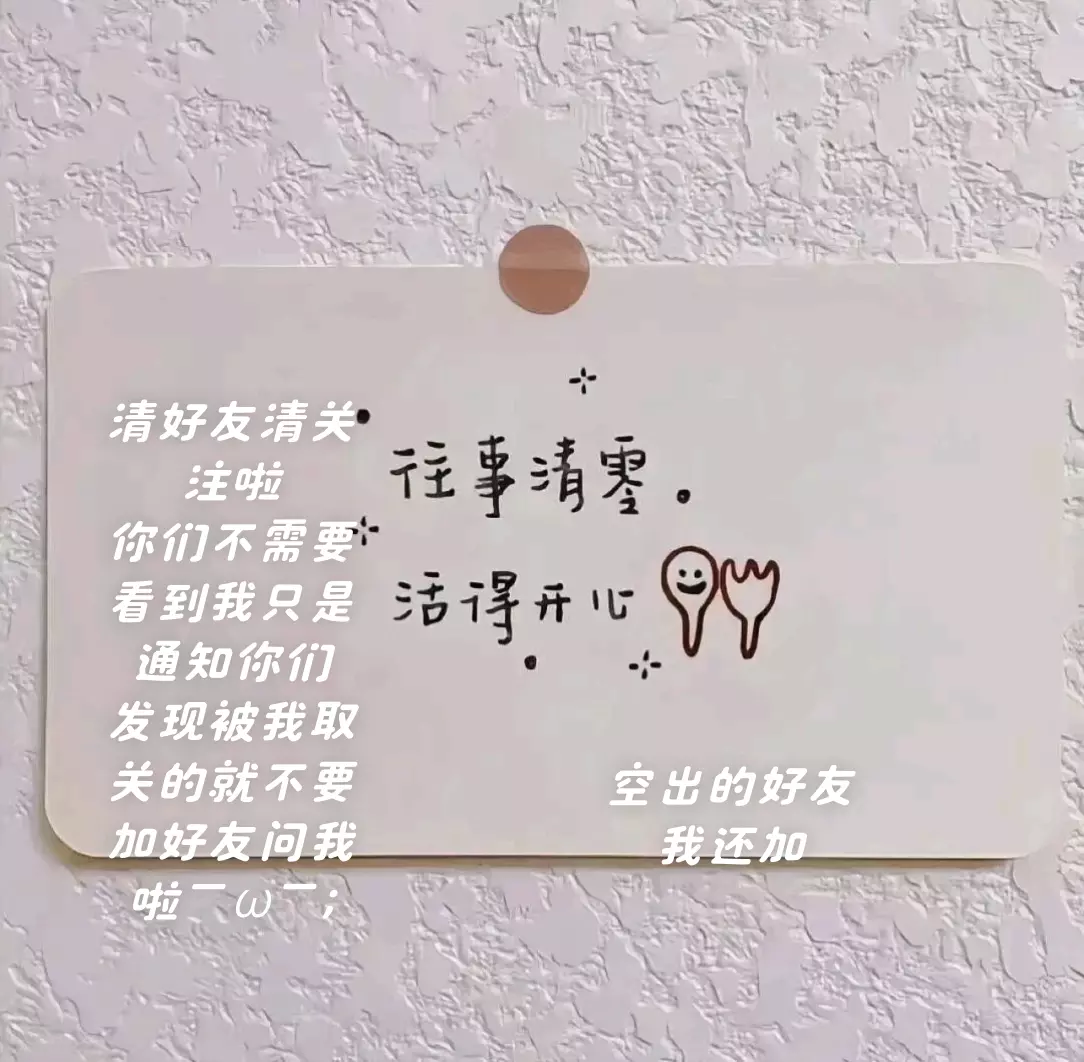 清好友清关
注啦
你们不需要
看到我只是
通知你们
发现被我取
关的就不要
加好友问我
啦￣ω￣；
往事清零.
活得开心
空出的好友
我还加